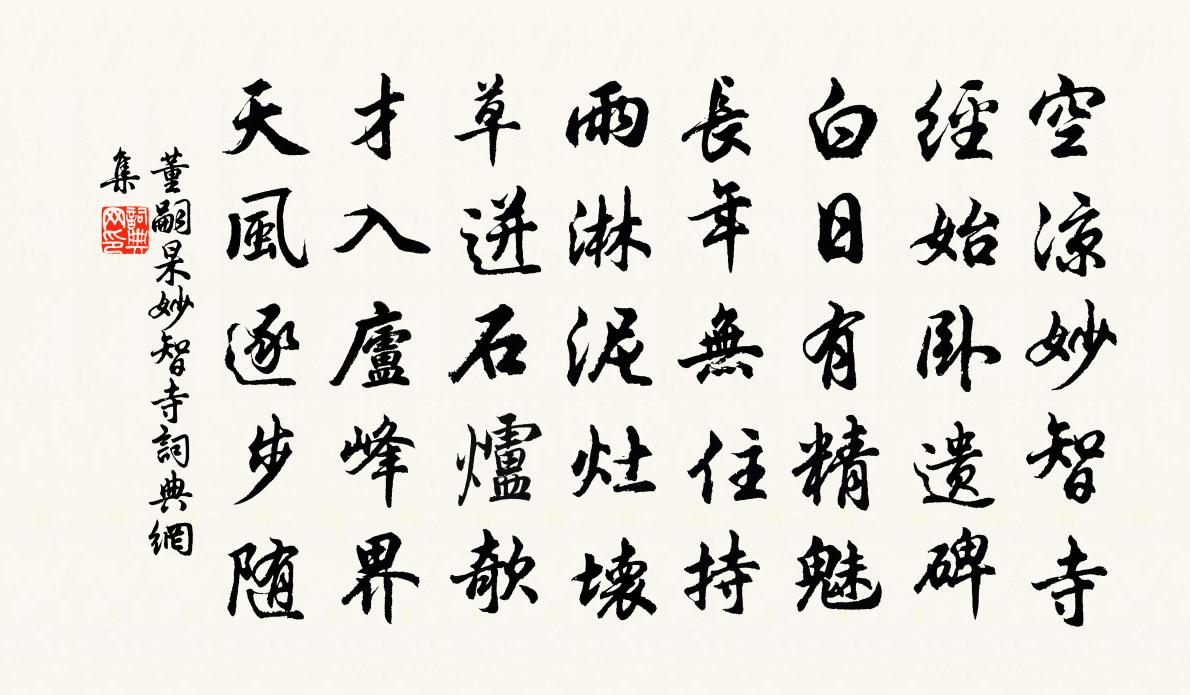 空涼妙智寺
經始臥遺碑
白日有精魅
長年無住持
雨淋泥灶壞
草迸石爐欹
才入廬峰界
天風逐步隨
董嗣杲妙智寺詞典網
集
詞典
网印